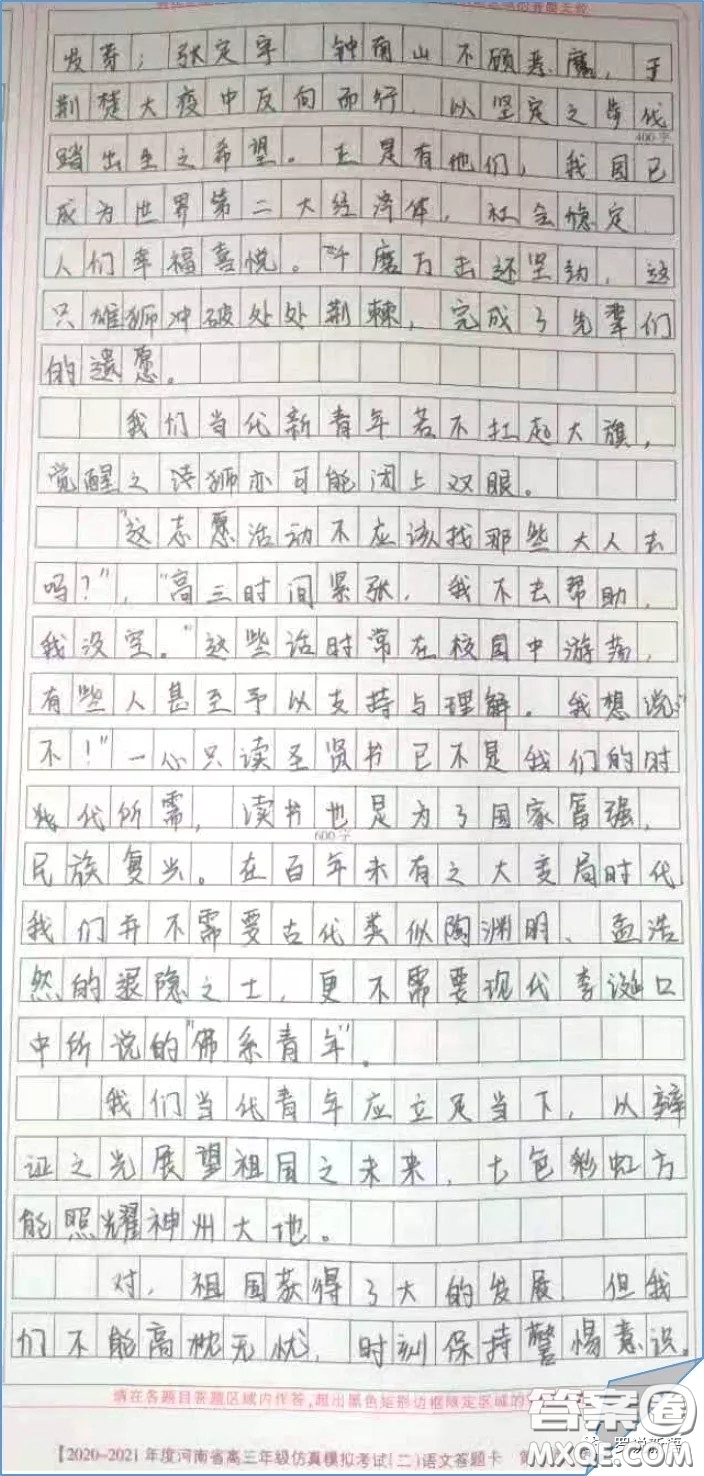 发芽；张定宇 钟南山不顾恶魔，于
荆楚大疫中反向而行，以坚定之步伐
400字
踏出生之希望。正是有他们，我国已
成为世界第二大经济体，社会稳定
人们幸福喜悦。"千磨万击还坚劲，这
只雄狮冲破处处荆棘，完成了先辈们
的遗愿。
我们当代新青年若不扛起大旗，
觉醒之诗狮亦可能闭上双眼。
"这志愿活动不应该找那些大人去
吗？"，"高三时间紧张，我不去帮助，
我没空。"这些话时常在校园中游荡，
有些人甚至予以支持与理解。我想说："
不！"一心只读圣贤书已不是我们的时
代所需，读书也是为了国家富强，
600字
民族复兴。在百年未有之大变局时代
我们并不需要古代类似陶渊明、孟浩
然的退隐之士，更不需要现代李诞口
中所说的"佛系青年"。
我们当代青年应立足当下，以辩
证之光展望祖国之未来，七色彩虹方
能照耀神州大地。
对，祖国获得了大的发展，但我
们不能高枕无忧，时刻保持警惕意识。
请在各题目答题区域内作答，超出黑色矩形边框限定区域的
【2020-2021年度河南省高三年级仿真模拟考试(二)语文答题卡 第
答案圈
MXQE.COM